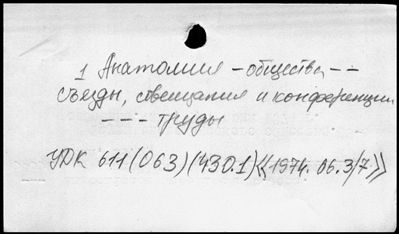 1 Анатомия – общества – –
съезды, совещания и конференции
– – – труды
УДК 611(063)(430.1)«1974.06.3/7»